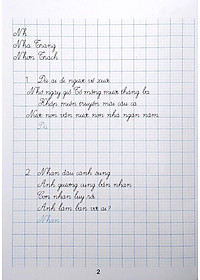 Nh
Nha Trang
Nhơn Trạch
1. Dù ai đi ngược về xuôi
Nhớ ngày giỗ Tổ mồng mười tháng ba
Khắp miền truyền mãi câu ca
Nước non vẫn nước non nhà ngàn năm
Dù
2. Nhan
Anh gương cùng bạn
Con
Anh làm bạn với ai?
Nhan
2